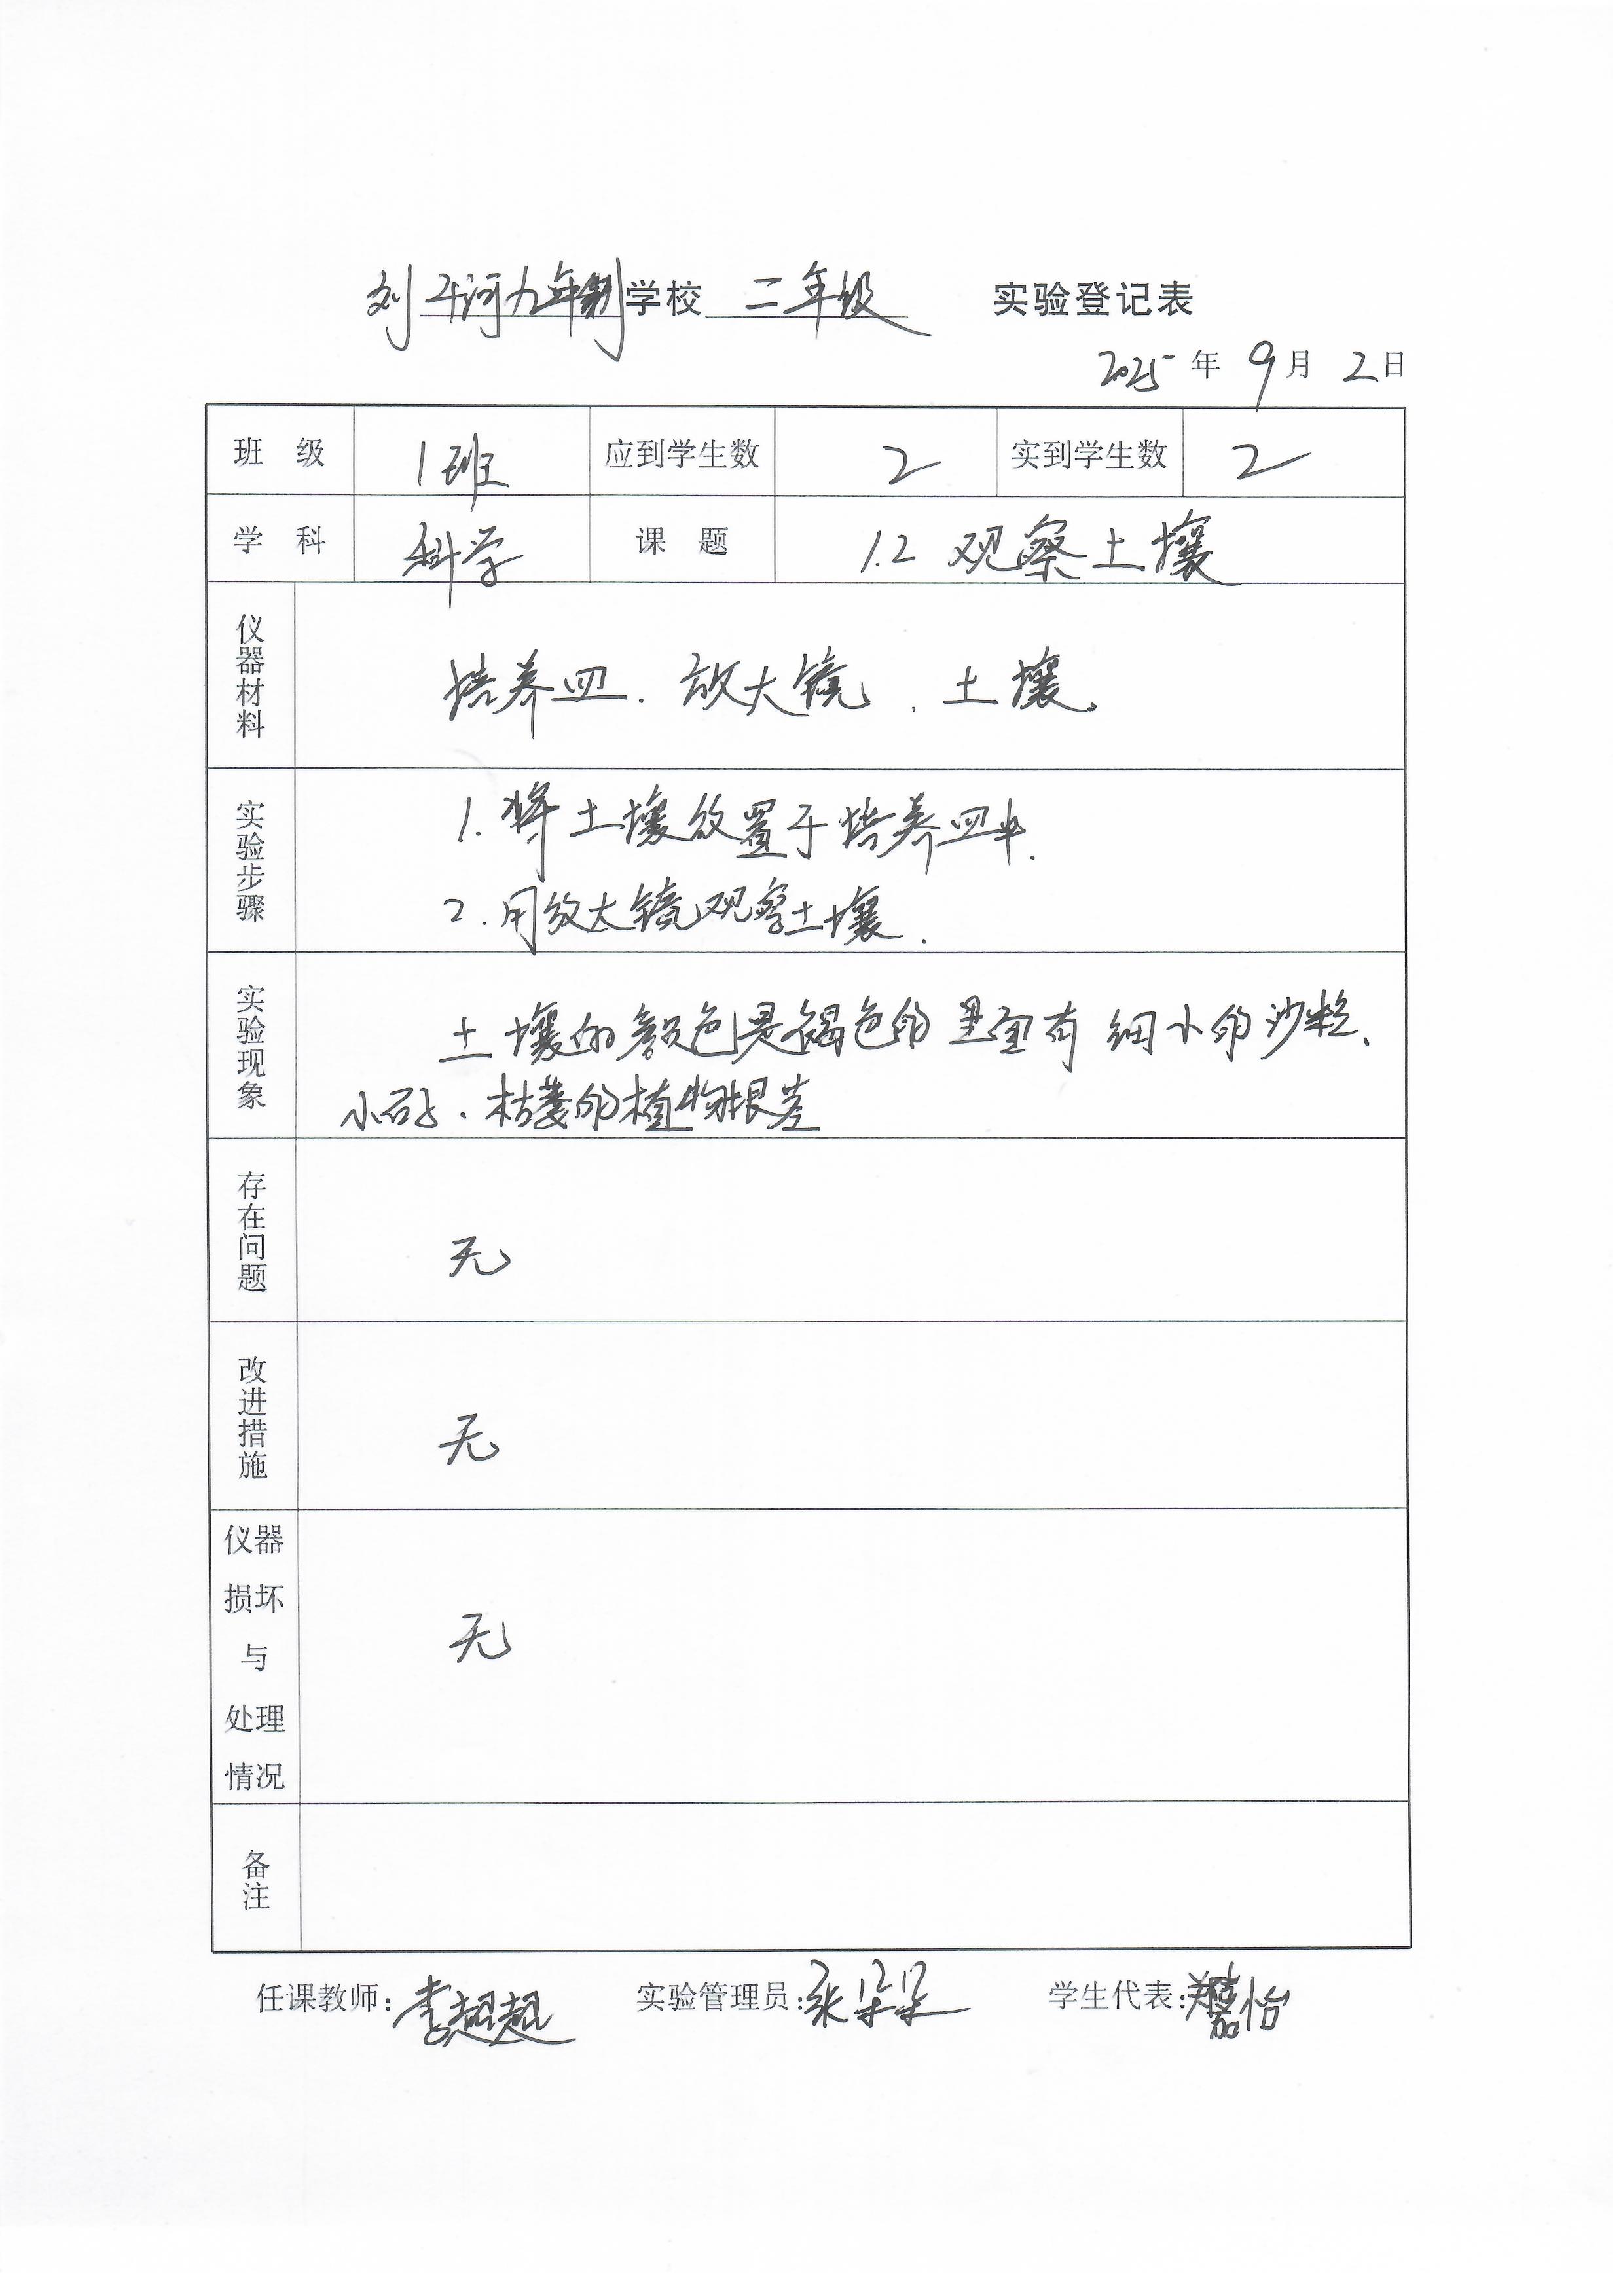 刘千河九年制学校 二年级 实验登记表
2025年9月2日
班级 1班 应到学生数 2 实到学生数 2
学科 科学 课题 1.2 观察土壤
仪器材料 培养皿、放大镜、土壤。
实验步骤 1. 将土壤放置于培养皿中.
2. 用放大镜观察土壤.
实验现象 土壤的颜色是褐色的 里面有细小的沙粒、
小石子、枯萎的植物根茎
存在问题 无
改进措施 无
仪器损坏与处理情况 无
备注
任课教师:李超超 实验管理员:张朵朵 学生代表:郑嘉怡